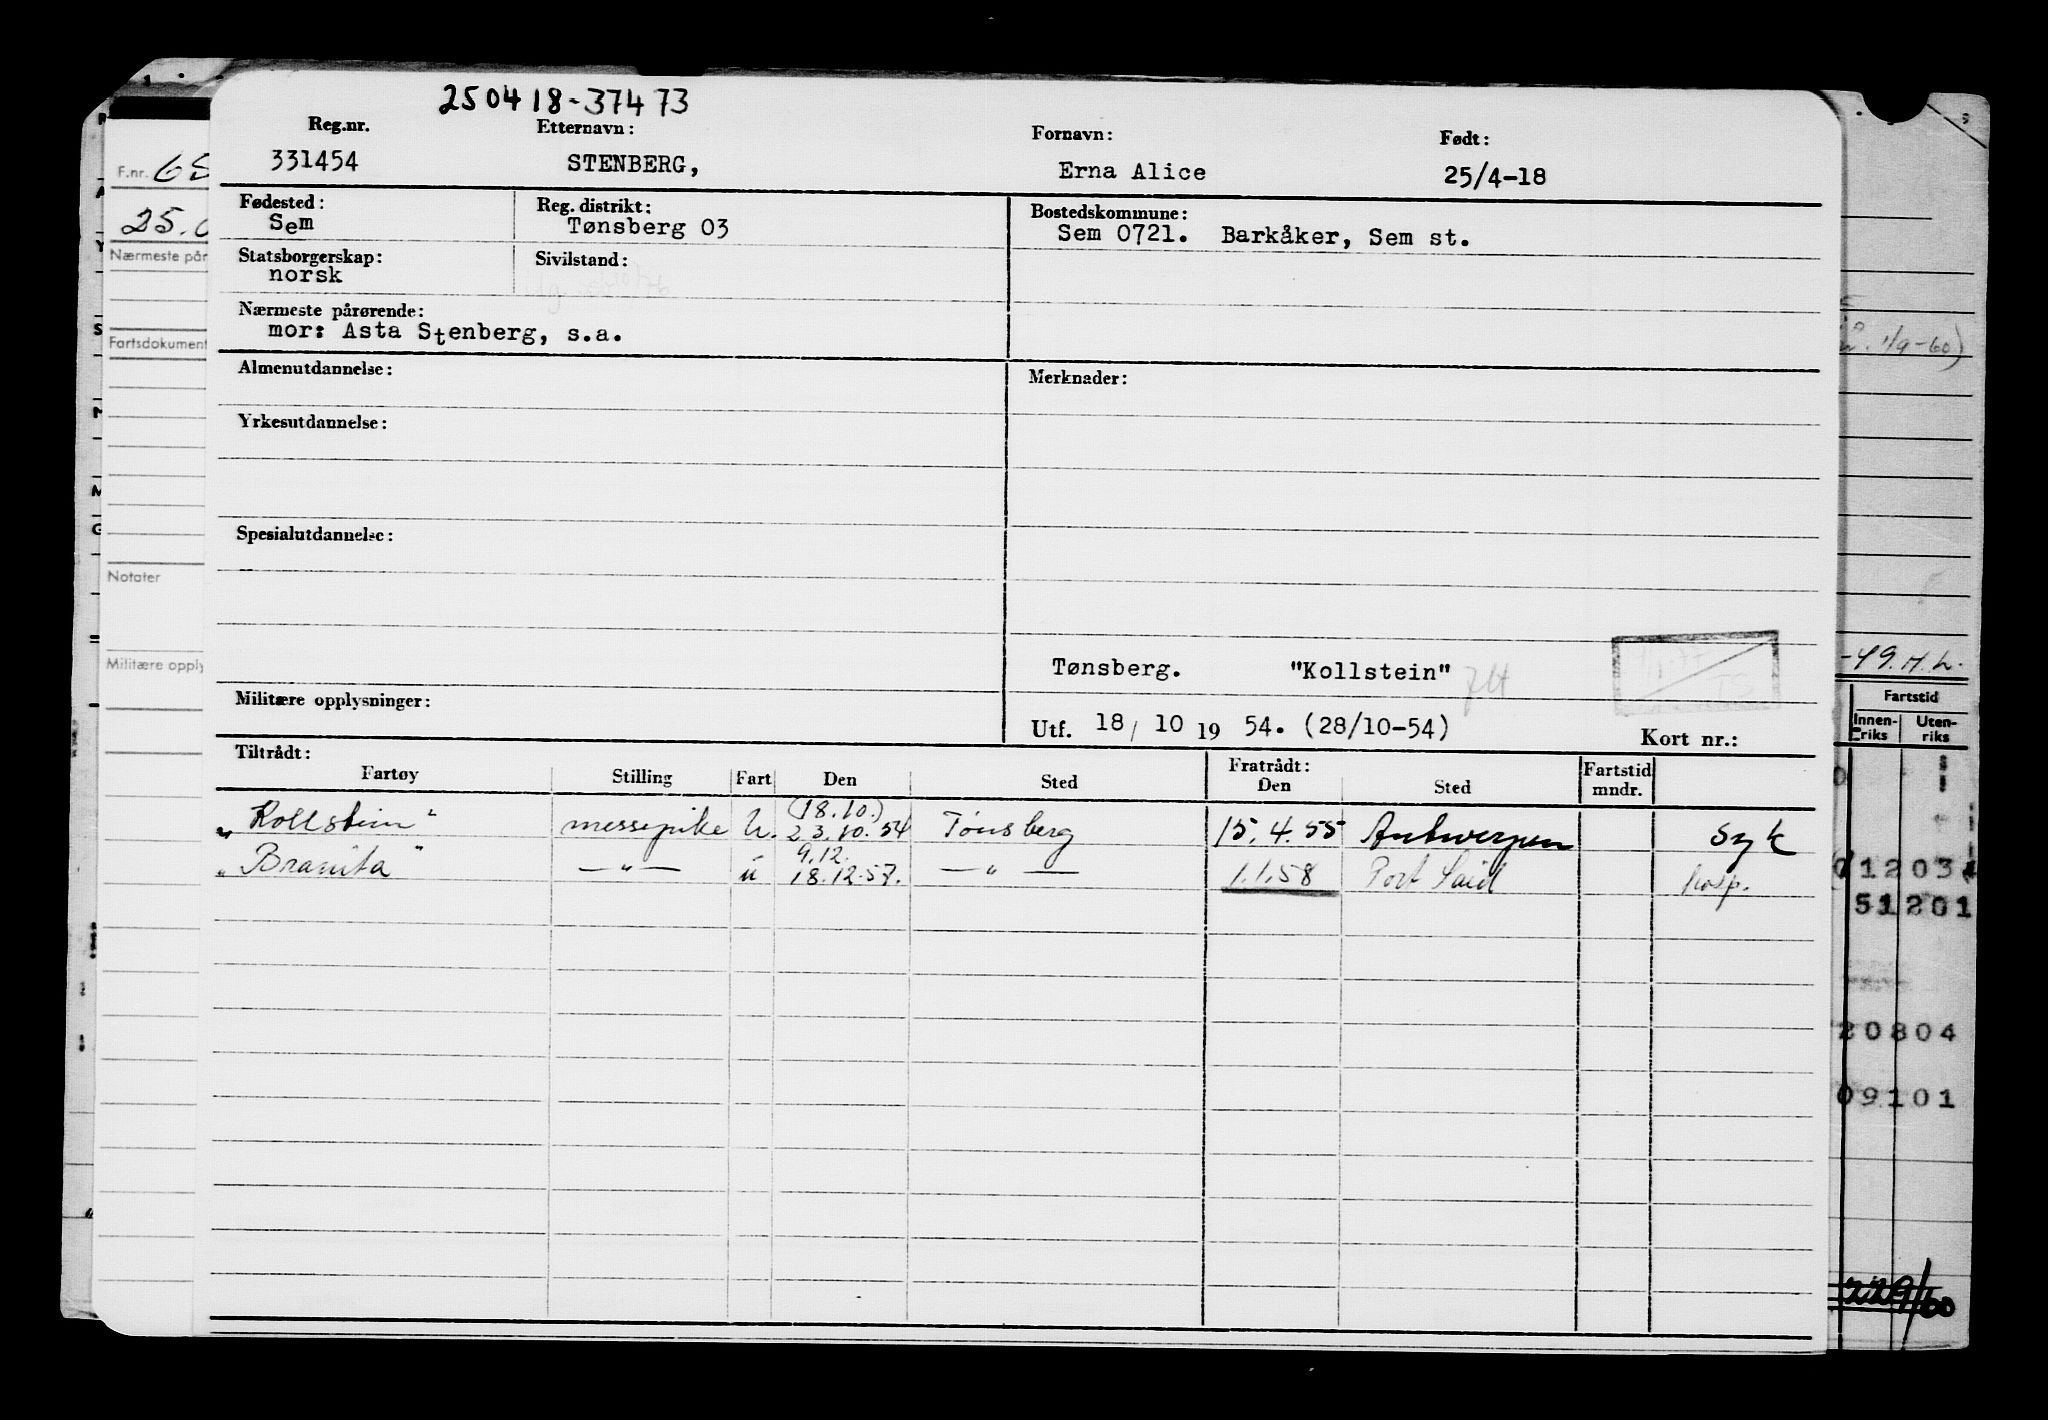 250418-37473
Reg.nr. Etternavn: Fornavn: Født:
331454 STENBERG, Erna Alice 25/4-18
Fødested: Reg. distrikt: Bostedskommune:
Sem Tønsberg 03 Sem 0721. Barkåker, Sem st.
Statsborgerskap: Sivilstand:
norsk
Nærmeste pårørende:
mor: Asta Stenberg, s.a.
Almenutdannelse: Merknader:
Yrkesutdannelse:
Spesialutdannelse:
Tønsberg. "Kollstein"
Militære opplysninger:
Utf. 18/ 10 19 54. (28/10-54) Kort nr.:
Tiltrådt: Fratrådt:
Fartøy Stilling Fart Den Sted Den Sted Fartstid mndr.
(18.10.)
"Kollstein" messepike U. 23.10.54 Tønsberg 15.4.55 Antwerpen syk
9.12.
"Branita" —"— u 18.12.57. —"— 1.1.58 Port Said hosp.
F.nr. 
25.0
Nærmeste pår
Fartsdokument
Notater
Militære opply
1/9-60)
-49. H. L.
Fartstid
Innen-riks Uten-riks
1203
51201
20804
09101